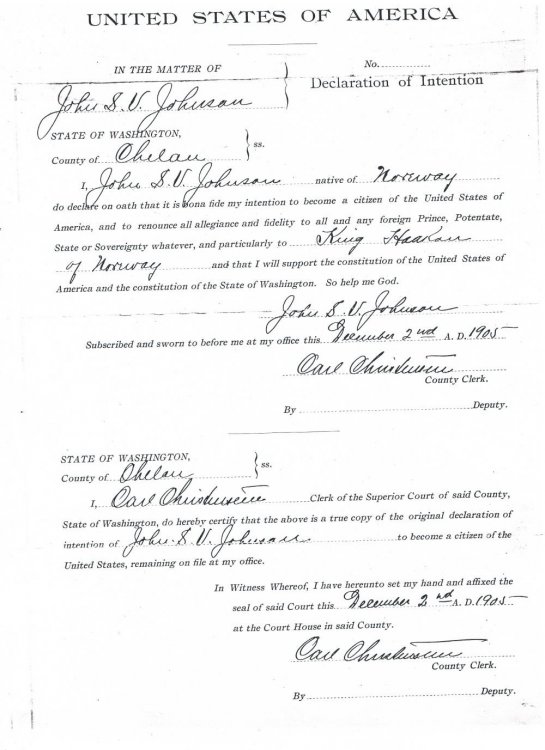 UNITED STATES OF AMERICA
IN THE MATTER OF
No.
Declaration of Intention
John S. V. Johnson
STATE OF WASHINGTON,
County of Chelan ss.
I, John S. V. Johnson native of Norway
do declare on oath that it is bona fide my intention to become a citizen of the United States of
America, and to renounce all allegiance and fidelity to all and any foreign Prince, Potentate,
State or Sovereignty whatever, and particularly to King Haakon
of Norway and that I will support the constitution of the United States of
America and the constitution of the State of Washington. So help me God.
John S. V. Johnson
Subscribed and sworn to before me at my office this December 2nd A. D. 1905
Carl Christensen
County Clerk.
By Deputy.
STATE OF WASHINGTON,
County of Chelan ss.
I, Carl Christensen Clerk of the Superior Court of said County,
State of Washington, do hereby certify that the above is a true copy of the original declaration of
intention of John S. V. Johnson to become a citizen of the
United States, remaining on file at my office.
In Witness Whereof, I have hereunto set my hand and affixed the
seal of said Court this December 2nd A. D. 1905
at the Court House in said County.
Carl Christensen
County Clerk.
By Deputy.